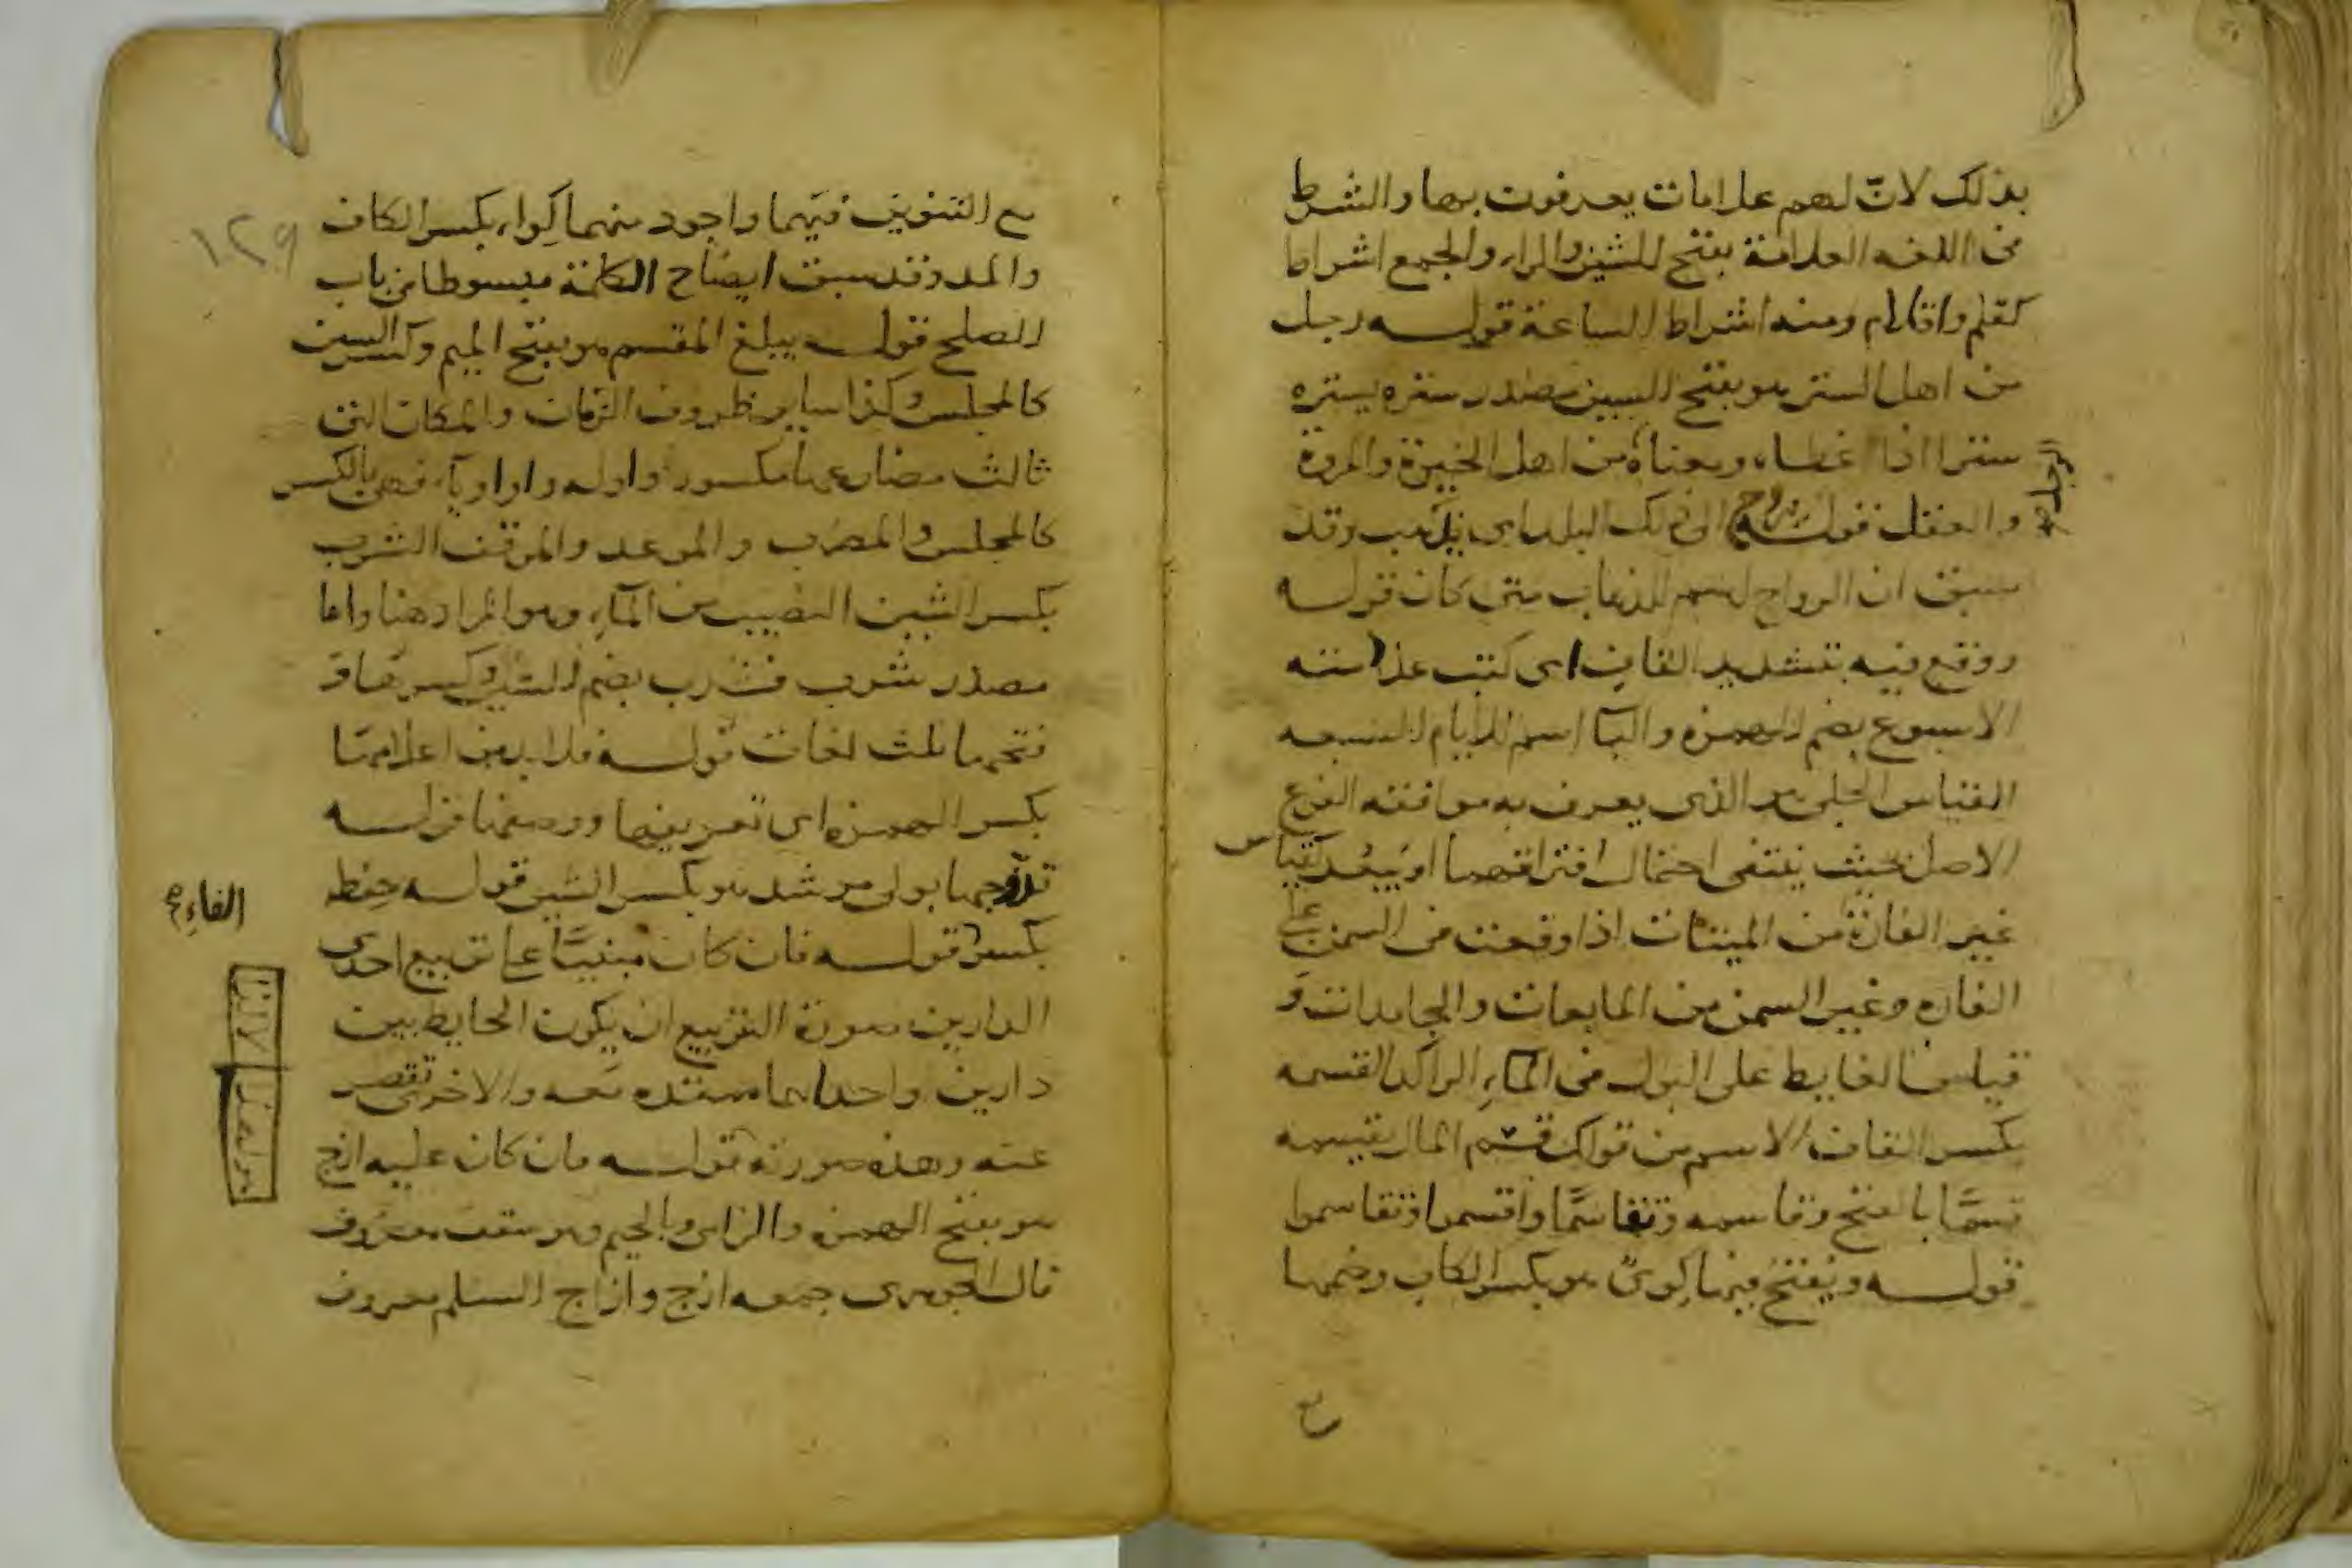 بذلك لانّ لهم علامات يعرفون بها والشرط
في اللغه العلامة بفتح الشين والراء والجمع اشراط
كقلم واقلام ومنه اشراط الساعة قوله رجل
من اهل الستر هو بفتح السين مصدر ستره يستره
سترا اذا غطاه ومعناه من اهل الخير والمروة
والعقل قوله يروح الى ذلك البلد اى يذهب وقد
سبق ان الرواح اسم للذهاب متى كان قوله
ووقع فيه بتشديد القاف اى كتب علامته
الاسبوع بضم الهمزه والبا اسم للايام السبعه
القياس الجلي هو الذى يعرف به موافقه الفرع
الاصل بحيث ينتفى احتمال افتراقهما او يبعد كقياس
غير الفارة من الميتات اذا وقعت في السمن على
الفاره وغير السمن من المايعات والجامدات و
قياس الغايط على البول في الماء الراكد القسمه
بكسر القاف الاسم من قولك قسم المال يقسمه
قسمًا بالفتح وقاسمه وتقاسمًا واقتسموا وتقاسموا
قوله ويفتح فيها كوىً هو بكسر الكاف وضمها
مع التنوين فيهما واجود منهما كِواء بكسر الكاف
والمد وقد سبق ايضاح الكلمة مبسوطا في باب
الصلح قوله يبلغ المقسم هو بفتح الميم وكسر السين
كالمجلس وكذا ساير ظروف الزمان والمكان التي
ثالث مضارعها مكسور واوله واو اويآء فهى بالكسر
كالمجلس والمضرب والموعد والموقف الشرب
بكسر الشين النصيب من المآء وهو المراد هنا واما
مصدر شرب فشرب بضم الشين وكسرها و
فتحها ثلث لغات قوله فلا بد من اعلامها
بكسر الهمزه اى تعريفها ووصفها قوله
تزوجها بولى مرشد هو بكسر الشين قوله حفظ
بكسر قوله فان كان مبنيًّا على تربيع احدى
الدارين صورة التربيع ان يكون الحايط بين
دارين واحداهما ممتده معه والاخرى تقصر
عنه وهذه صورته قوله فان كان عليه ازج
هو بفتح الهمزه والزاى وبالجيم وهو سقف معروف
قال الجوهرى جمعه ازج وازاج السلم معروف
١٢٩
الفاء صح